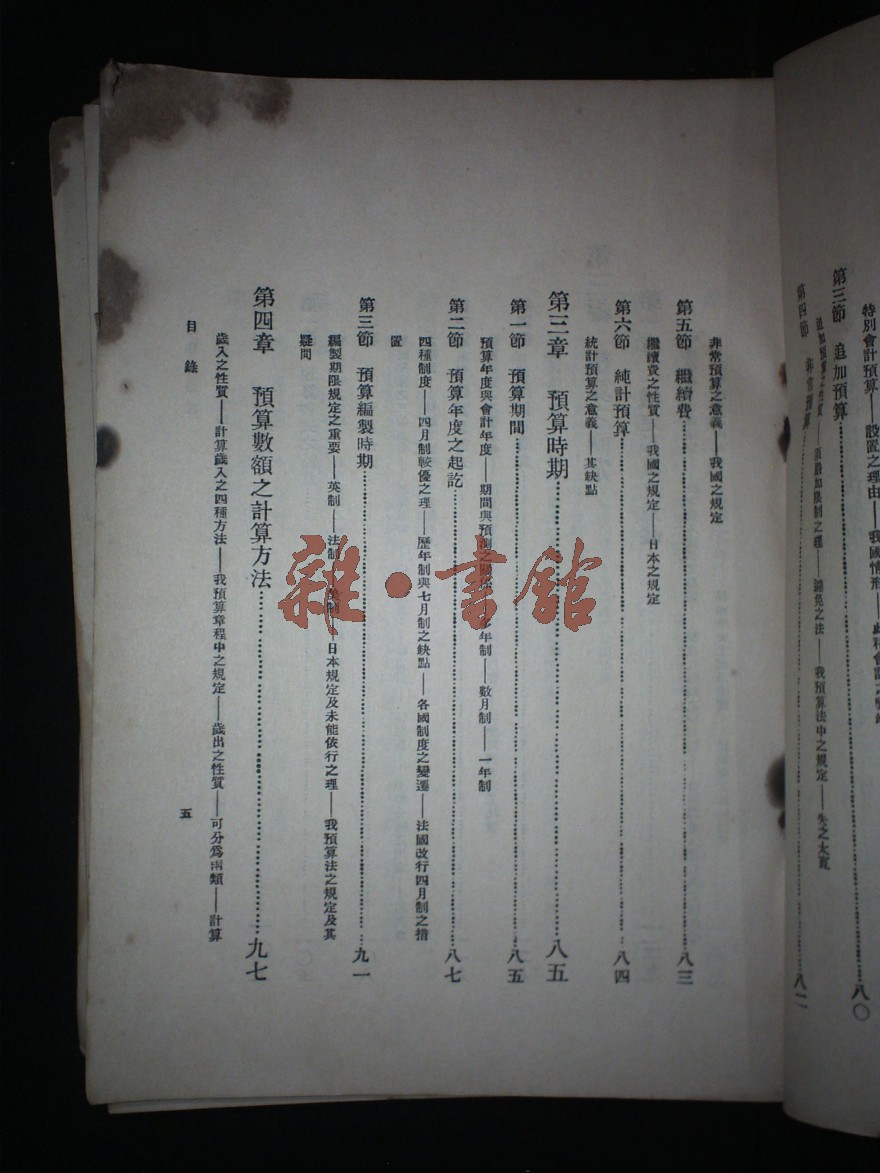 特別會計預算——設置之理由——我國情形——
第三節　追加預算……八〇
追加預算之性質——須設加限制之理——避免之法——我預算法中之規定——失之太寬
第四節　非常預算……八二
非常預算之意義——我國之規定
第五節　繼續費……八三
繼續費之性質——我國之規定——日本之規定
第六節　純計預算……八四
統計預算之意義——其缺點
第三章　預算時期……八五
第一節　預算期間……八五
預算年度與會計年度——期間與預測之關係——多年制——數月制——一年制
第二節　預算年度之起訖……八七
四種制度——四月制較優之理——歷年制與七月制之缺點——各國制度之變遷——法國改行四月制之措
置
第三節　預算編製時期……九一
編製期限規定之重要——英制——法制——美制——日本規定及未能依行之理——我預算法之規定及其
疑問
第四章　預算數額之計算方法……九七
歲入之性質——計算歲入之四種方法——我預算章程中之規定——歲出之性質——可分爲兩類——計算
目錄
五
雜·書館